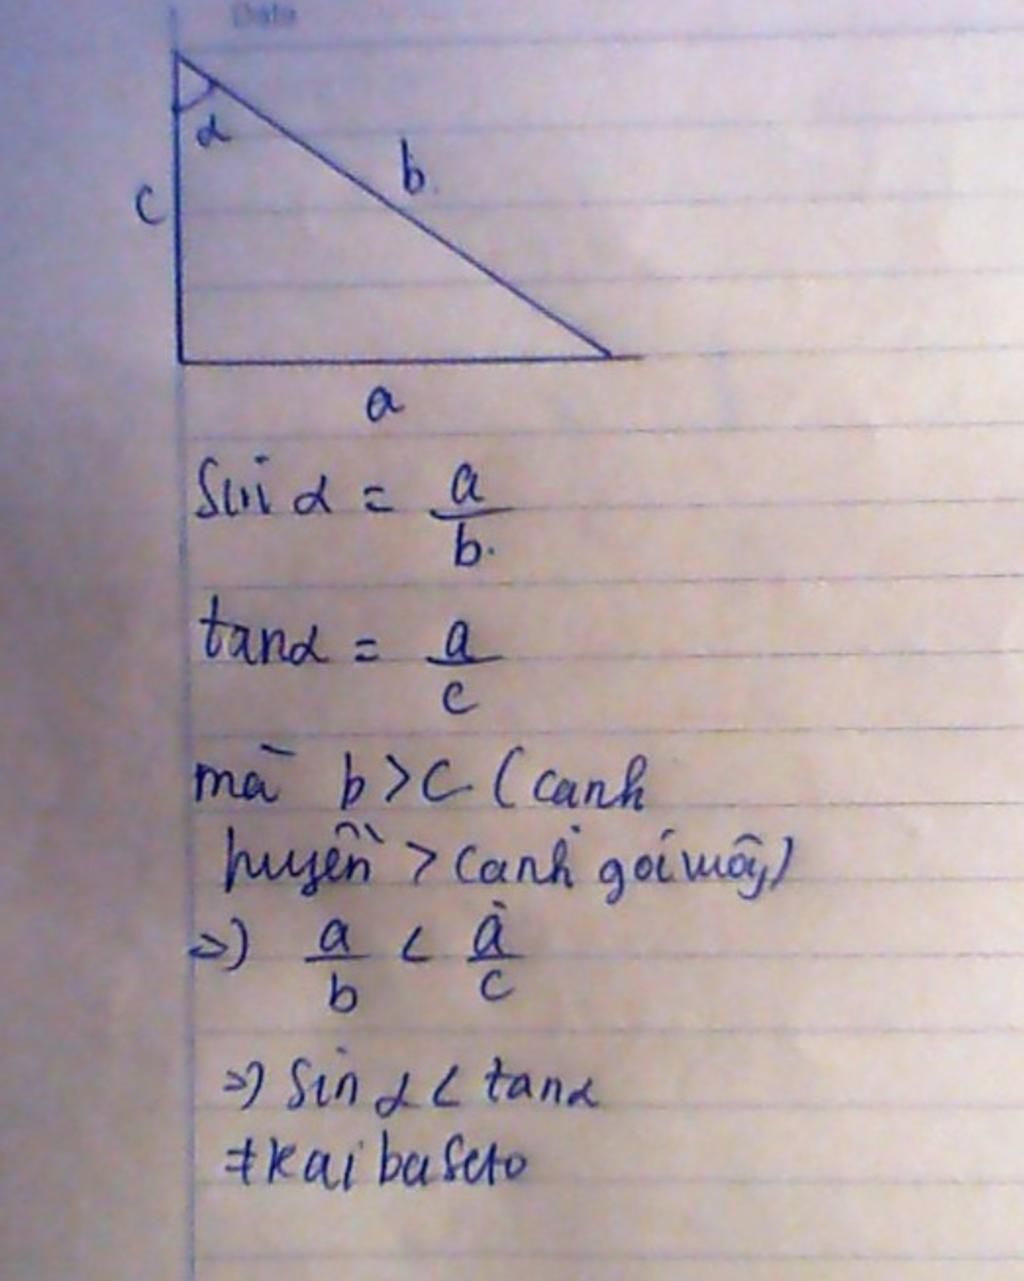 Date
α
b
c
a
Sin α = a/b
tan α = a/c
mà b > c (cạnh
huyền > cạnh góc vuông)
=> a/b < a/c
=> Sin α < tan α
≠kaibaseto